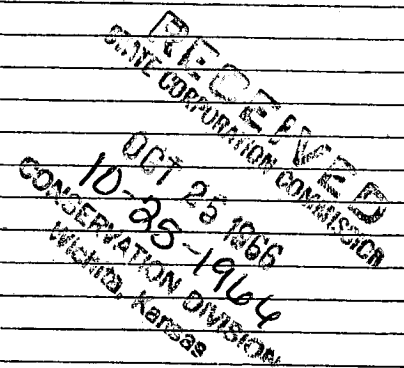 RECEIVED
STATE CORPORATION COMMISSION
OCT 25 1966
10-25-1966
CONSERVATION DIVISION
Wichita, Kansas